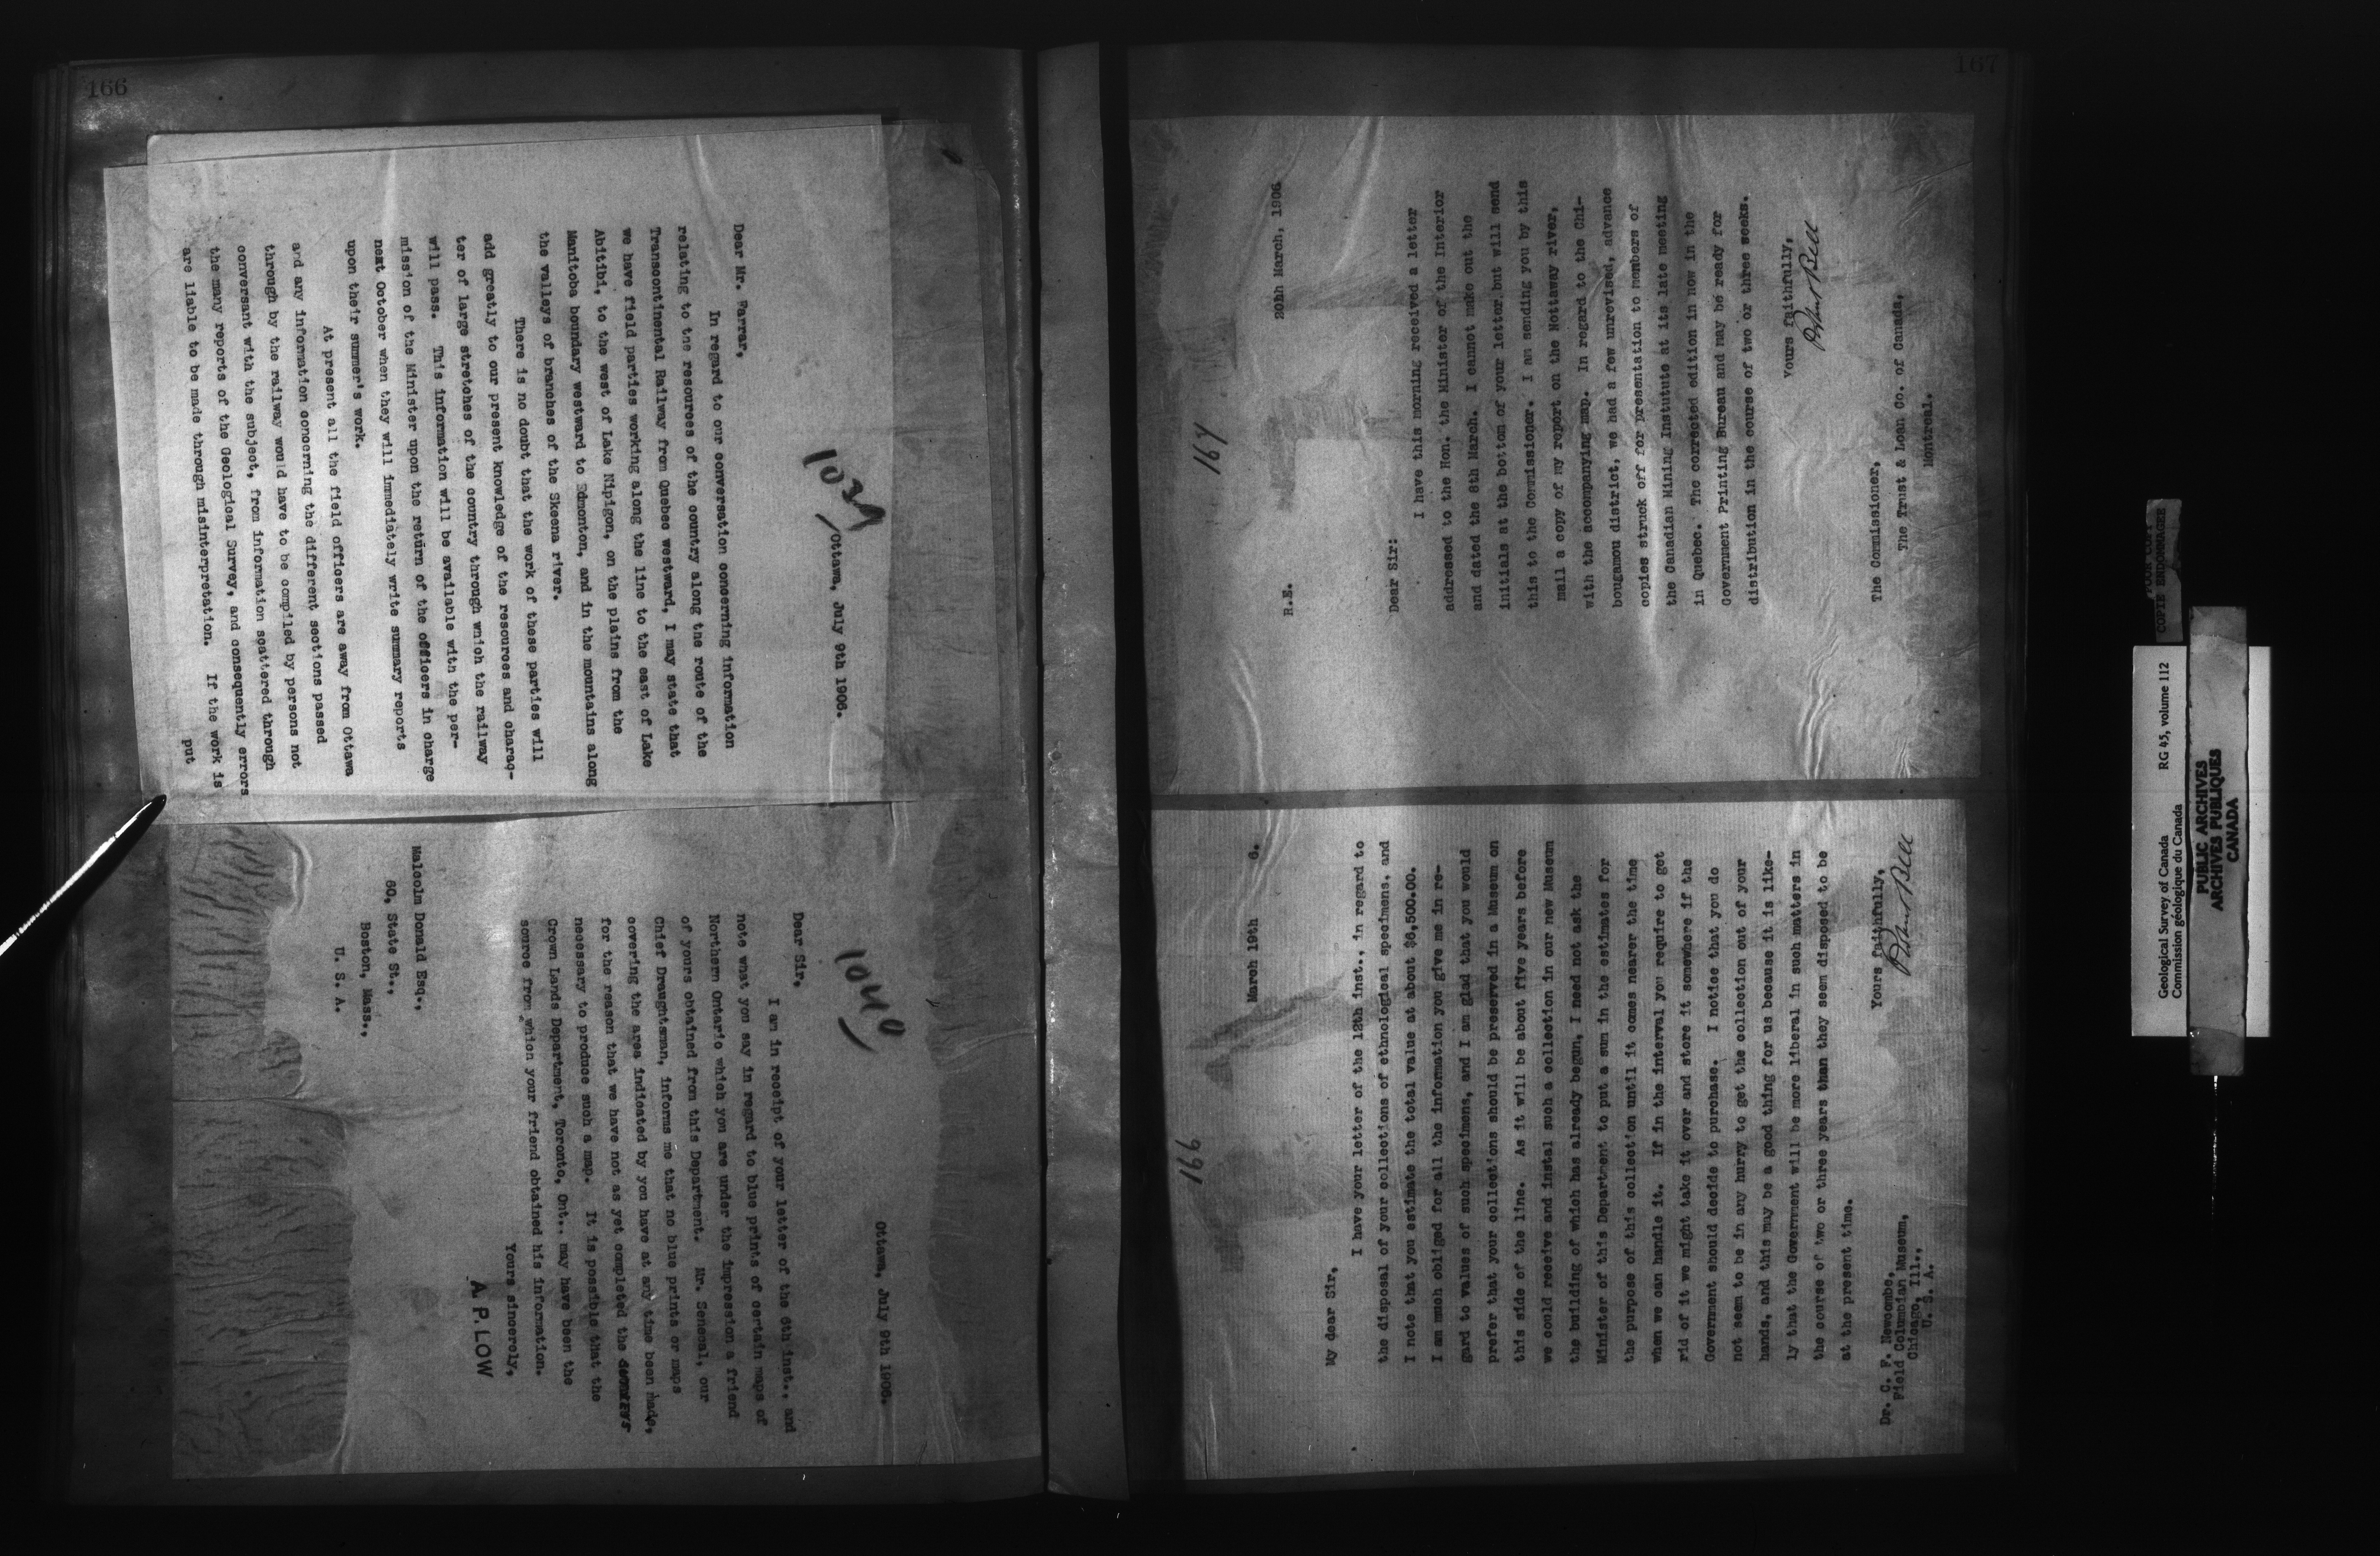 166
1039
Ottawa, July 9th 1906.
Dear Mr. Farrar,
In regard to our conversation concerning information
relating to the resources of the country along the route of the
Transcontinental Railway from Quebec westward, I may state that
we have field parties working along the line to the east of Lake
Abitibi, to the west of Lake Nipigon, on the plains from the
Manitoba boundary westward to Edmonton, and in the mountains along
the valleys of branches of the Skeena river.
There is no doubt that the work of these parties will
add greatly to our present knowledge of the resources and charac-
ter of large stretches of the country through which the railway
will pass. This information will be available with the per-
mission of the Minister upon the return of the officers in charge
next October when they will immediately write summary reports
upon their summer's work.
At present all the field officers are away from Ottawa
and any information concerning the different sections passed
through by the railway would have to be compiled by persons not
conversant with the subject, from information scattered through
the many reports of the Geological Survey, and consequently errors
are liable to be made through misinterpretation. If the work is
put
1040
Ottawa, July 9th 1906.
Dear Sir,
I am in receipt of your letter of the 6th inst., and
note what you say in regard to blue prints of certain maps of
Northern Ontario which you are under the impression a friend
of yours obtained from this Department. Mr. Senecal, our
Chief Draughtsman, informs me that no blue prints or maps
covering the area indicated by you have at any time been made,
for the reason that we have not as yet completed the
necessary to produce such a map. It is possible that the
Crown Lands Department, Toronto, Ont., may have been the
source from which your friend obtained his information.
Yours sincerely,
A. P. LOW
Malcolm Donald Esq.,
60, State St.,
Boston, Mass.,
U. S. A.
167
167
20th March, 1906
R.E.
Dear Sir:
I have this morning received a letter
addressed to the Hon. the Minister of the Interior
and dated the 8th March. I cannot make out the
initials at the bottom of your letter but will send
this to the Commissioner. I am sending you by this
mail a copy of my report on the Nottaway river,
with the accompanying map. In regard to the Chi-
bougamou district, we had a few unrevised, advance
copies struck off for presentation to members of
the Canadian Mining Instutute at its late meeting
in Quebec. The corrected edition in now in the
Government Printing Bureau and may be ready for
distribution in the course of two or three weeks.
Yours faithfully,
Robert Bell
The Commissioner,
The Trust & Loan Co. of Canada,
Montreal.
166
March 19th 6.
My dear Sir,
I have your letter of the 12th inst., in regard to
the disposal of your collections of ethnological specimens, and
I note that you estimate the total value at about $6,500.00.
I am much obliged for all the information you give me in re-
gard to values of such specimens, and I am glad that you would
prefer that your collections should be preserved in a Museum on
this side of the line. As it will be about five years before
we could receive and instal such a collection in our new Museum
the building of which has already begun, I need not ask the
Minister of this Department to put a sum in the estimates for
the purpose of this collection until it comes nearer the time
when we can handle it. If in the interval you require to get
rid of it we might take it over and store it somewhere if the
Government should decide to purchase. I notice that you do
not seem to be in any hurry to get the collection out of your
hands, and this may be a good thing for us because it is like-
ly that the Government will be more liberal in such matters in
the course of two or three years than they seem disposed to be
at the present time.
Yours faithfully,
Robert Bell
Dr. C. F. Newcombe,
Field Columbian Museum,
Chicago, Ill.,
U. S. A.
POOR COPY
COPIE ENDOMMAGEE
Geological Survey of Canada RG 45, volume 112
Commission géologique du Canada
PUBLIC ARCHIVES
ARCHIVES PUBLIQUES
CANADA